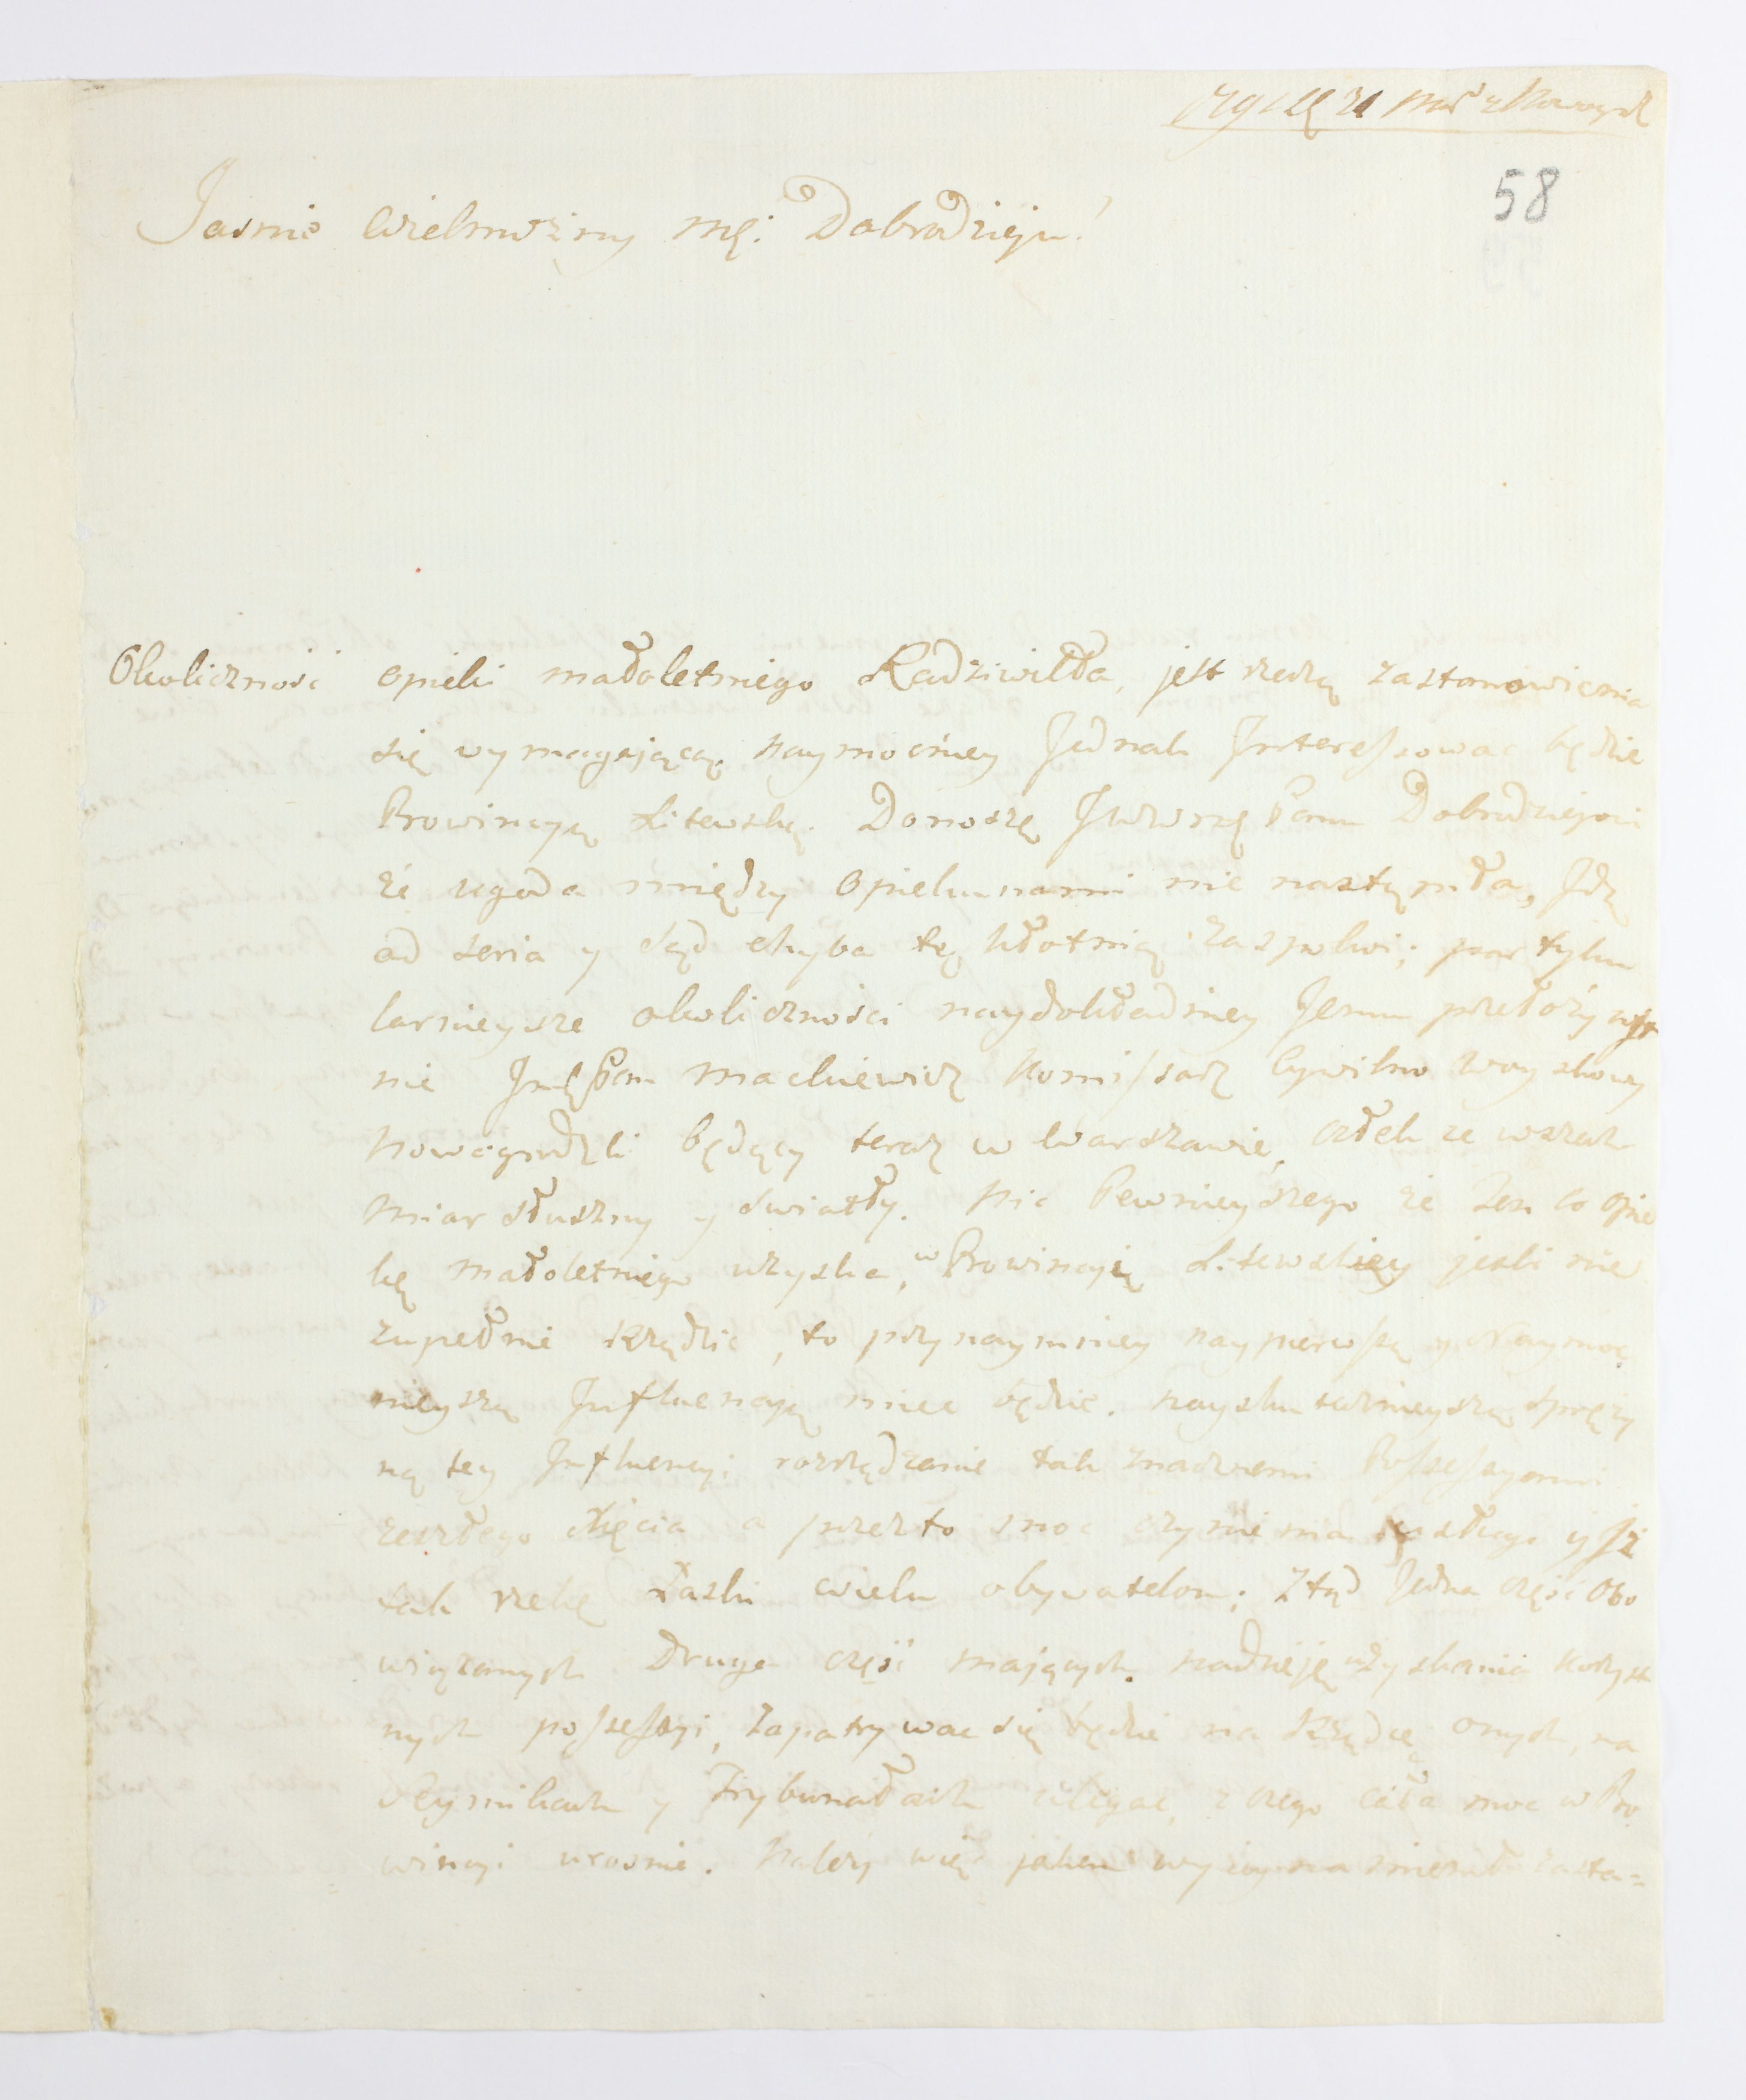 58
Jasnie Wielmożny Mci Dobrodzieju!
Okoliczność opieki małoletniego Radziwiłła, jest rzeczą zastanowienia
się wymagającą, naymocniey Jednak Interessować będzie
Prowincyą Litewską. Donoszę JWWMę Panu Dobrodziejowi
że ugoda między Opiekunami nie nastąpiła, Idą
ad seria y sąd chyba tę kłotnią zaspokoi; partyku
larnieysze okoliczności naydokładniey Jemu przełoży ust
nie JmćPan Mackiewicz Komissarz Cywilno Woyskowy
Nowogrodzki będący teraz w Warszawie, człek ze wszech
miar słuszny y swiatły. Nic Pewnieyszego że ten co opie
kę małoletniego uzyska, w Prowincyi Litewskiey jesli nie
zupełnie Rządzić, to przynaymniey naypierwszą y Naymoc
nieyszą Influencyą miec będzie. Nayskutecznieyszą spręży
ną tey Influencyi rozrządzenie tak znacznemi Possessyami
zeszłego Xięcia a przezto moc czynienia
tak rzekę łaski wielu obywatelom; Ztąd Jedna część Obo
wiązanych Druga część mających nadzieję uzyskania korzyst
nych possessyi, zapatrywac się będzie na Rządcę onych, na
Seymikach y Trybunałach ulegac, z czego cała moc w Pro
wincyi urosnie. Należy więc jakem wyżey na